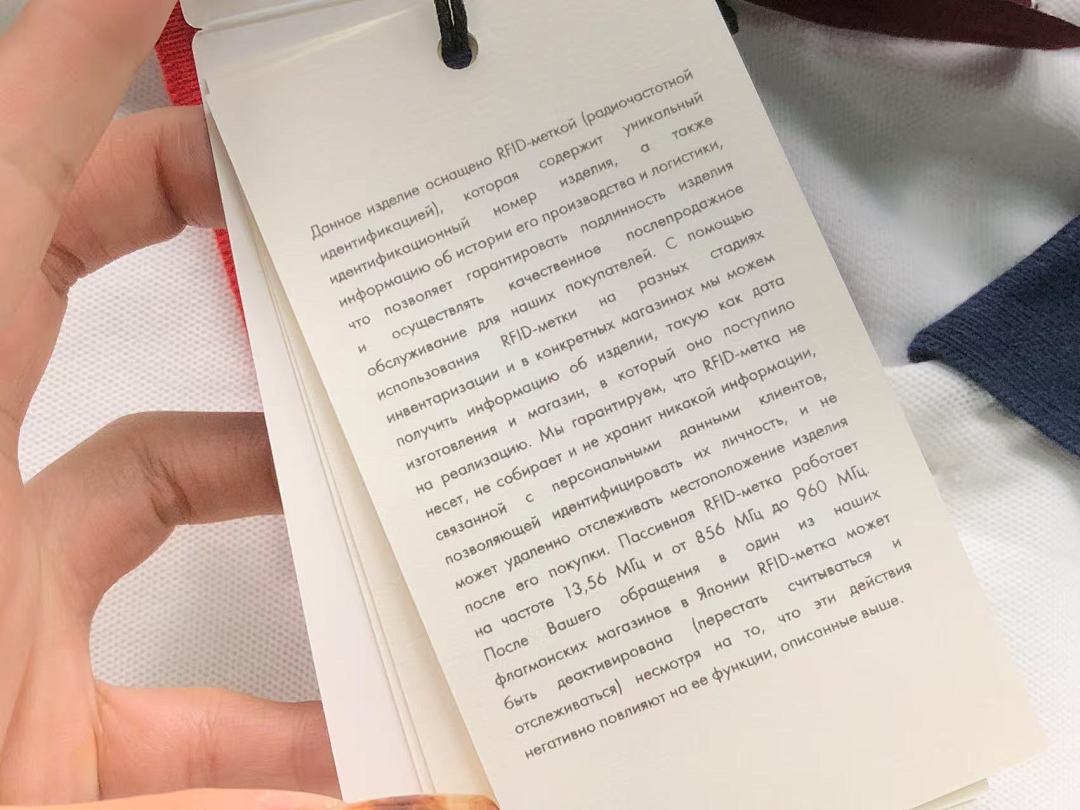 Данное изделие оснащено RFID-меткой (радиочастотной
идентификацией), которая содержит уникальный
идентификационный номер изделия, а также
информацию об истории его производства и логистики,
что позволяет гарантировать подлинность изделия
и осуществлять качественное послепродажное
обслуживание для наших покупателей. С помощью
использования RFID-метки на разных стадиях
инвентаризации и в конкретных магазинах мы можем
получить информацию об изделии, такую как дата
изготовления и магазин, в который оно поступило
на реализацию. Мы гарантируем, что RFID-метка не
несет, не собирает и не хранит никакой информации,
связанной с персональными данными клиентов,
позволяющей идентифицировать их личность, и не
может удаленно отслеживать местоположение изделия
после его покупки. Пассивная RFID-метка работает
на частоте 13,56 МГц и от 856 МГц до 960 МГц.
После Вашего обращения в один из наших
флагманских магазинов в Японии RFID-метка может
быть деактивирована (перестать считываться и
отслеживаться) несмотря на то, что эти действия
негативно повлияют на ее функции, описанные выше.